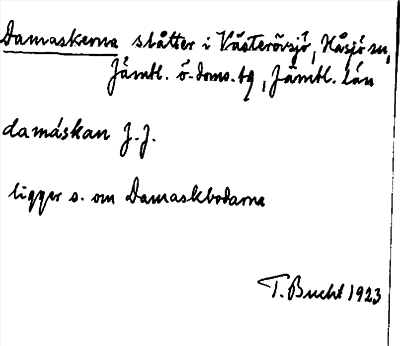 Damaskerna slåtter i Västerövsjö, Håsjö sn,
Jämtl. ö. doms. tg, Jämtl. län
damáskan J.J.
ligger s. om Damaskbodarna
T. Bucht 1923